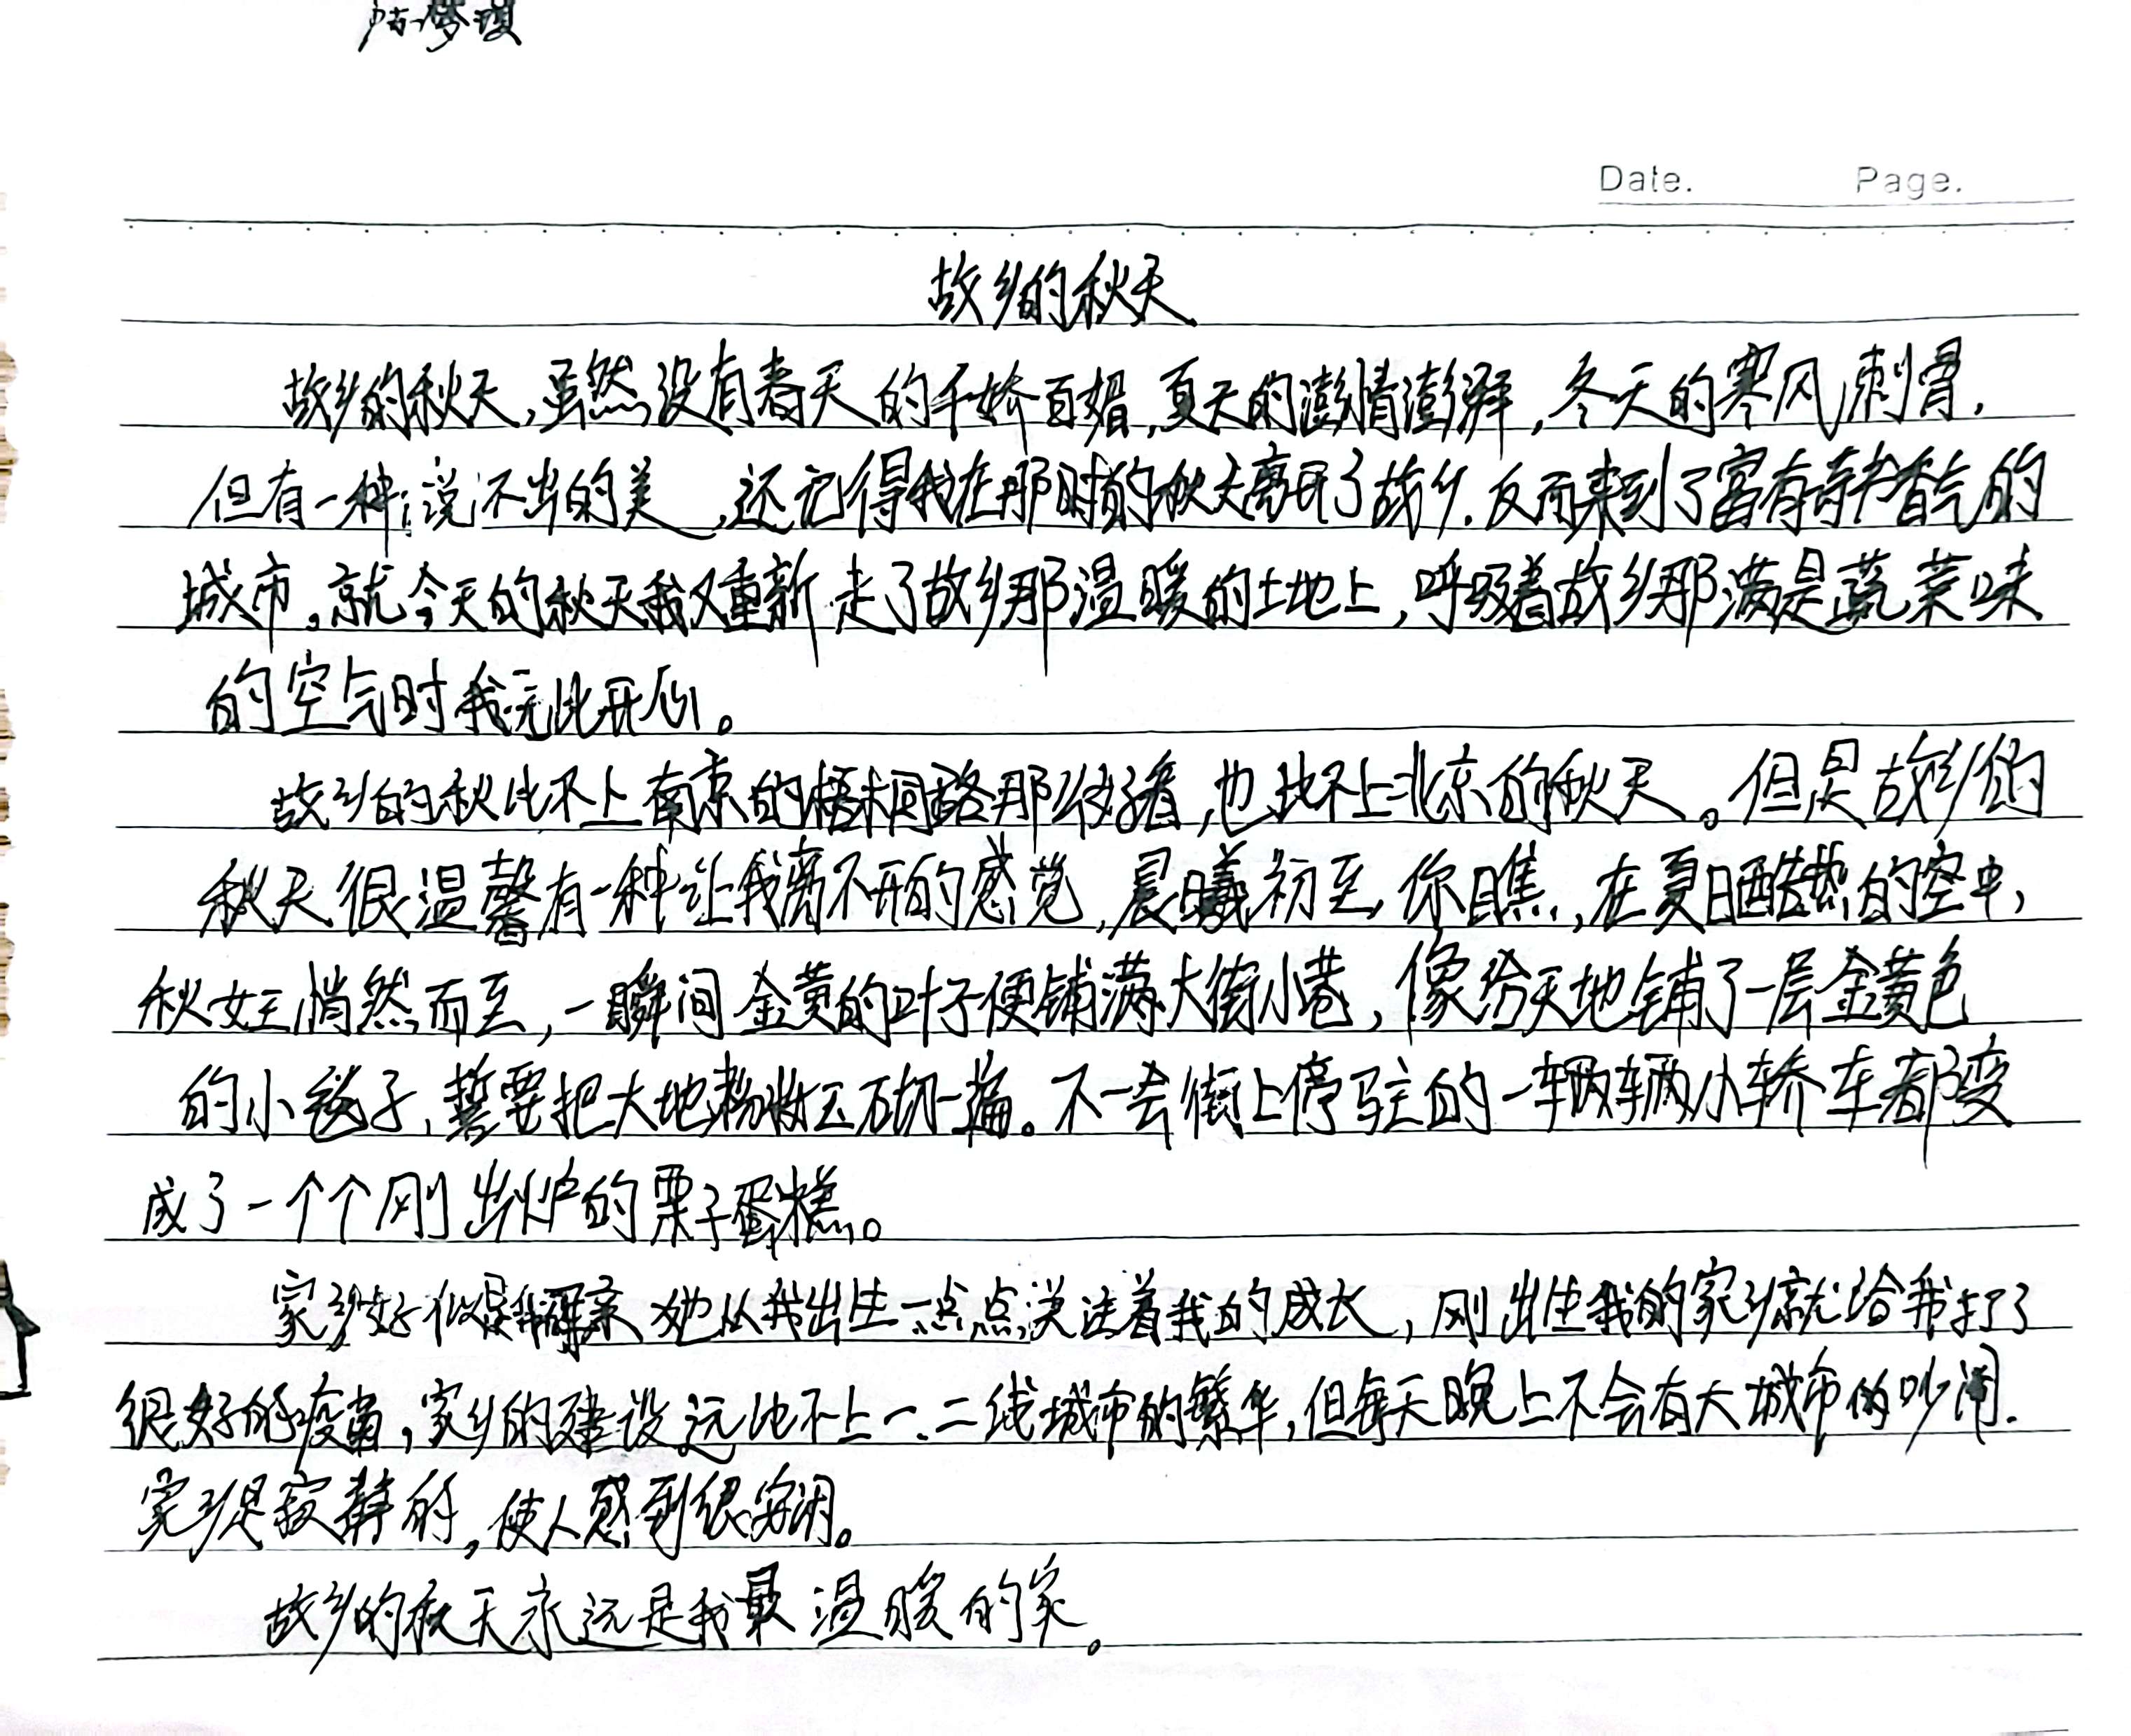 Date. Page.
故乡的秋天
故乡的秋天,虽然没有春天的千娇百媚,夏天的澎情澎湃,冬天的寒风刺骨,
但有一种说不出的美,还记得我在那时的秋天离开了故乡.反而来到了富有诗书香气的
城市。就今天的秋天我又重新走了故乡那温暖的土地上,呼吸着故乡那满是蔬菜味
的空气时我无比开心。
故乡的秋比不上南京的梧桐路那么好看,也比不上北京的秋天。但是故乡的
秋天很温馨有一种让我离不开的感觉,晨曦初至,你瞧,在夏日酷热的空中,
秋女王悄然而至,一瞬间金黄的叶子便铺满大街小巷,像给天地铺了一层金黄色
的小毯子,誓要把大地粉妆玉砌一遍。不一会街上停驻的一辆辆小轿车都变
成了一个个刚出炉的栗子蛋糕。
家乡好似是我母亲她从我出生一点点浇注着我的成长,刚出生我的家乡就给我打了
很好的疫苗,家乡的建设远比不上一.二线城市的繁华,但每天晚上不会有大城市的吵闹.
家乡是寂静的,使人感到很安闲。
故乡的秋天永远是我最温暖的家。